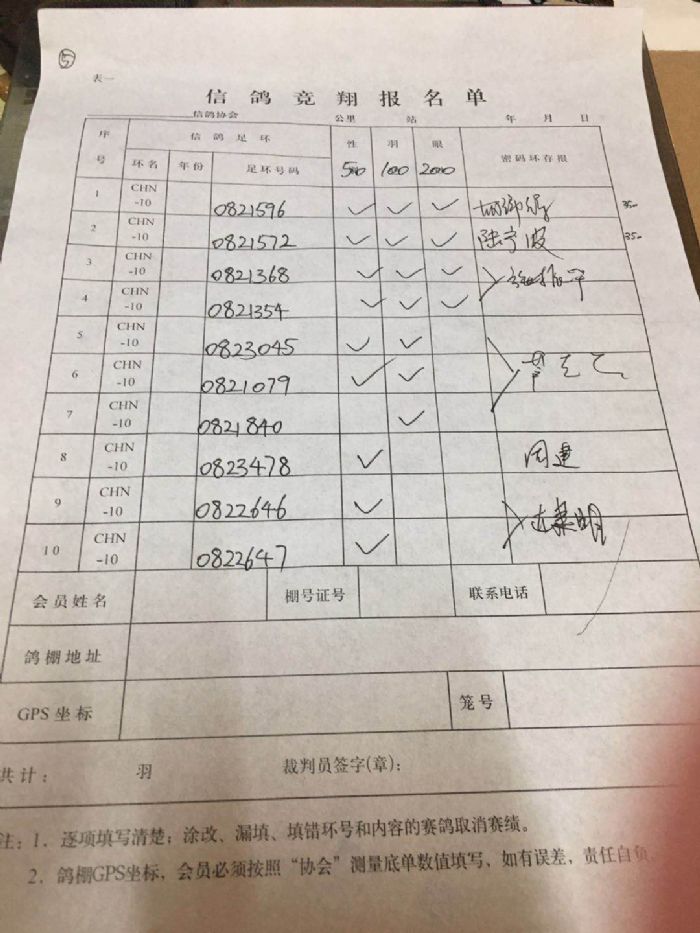 ⑤
表一
信鸽竞翔报名单
信鸽协会 公里 站 年 月 日
序号 信鸽足环 性 羽 眼 密码环存根
环名 年份 足环号码 500 1000 2000
1 CHN-10 0821596 ✓ ✓ ✓ 350
2 CHN-10 0821572 ✓ ✓ ✓ 陆宁波 350
3 CHN-10 0821368 ✓ ✓ ✓
4 CHN-10 0821354 ✓ ✓ ✓
5 CHN-10 0823045 ✓ ✓
6 CHN-10 0821079 ✓ ✓
7 CHN-10 0821840 ✓
8 CHN-10 0823478 ✓ 周建
9 CHN-10 0822646 ✓
10 CHN-10 0822647 ✓
会员姓名 棚号证号 联系电话
鸽棚地址
GPS坐标 笼号
共计： 羽 裁判员签字(章)：
注：1．逐项填写清楚；涂改、漏填、填错环号和内容的赛鸽取消赛绩。
2．鸽棚GPS坐标，会员必须按照“协会”测量底单数值填写，如有误差，责任自负。